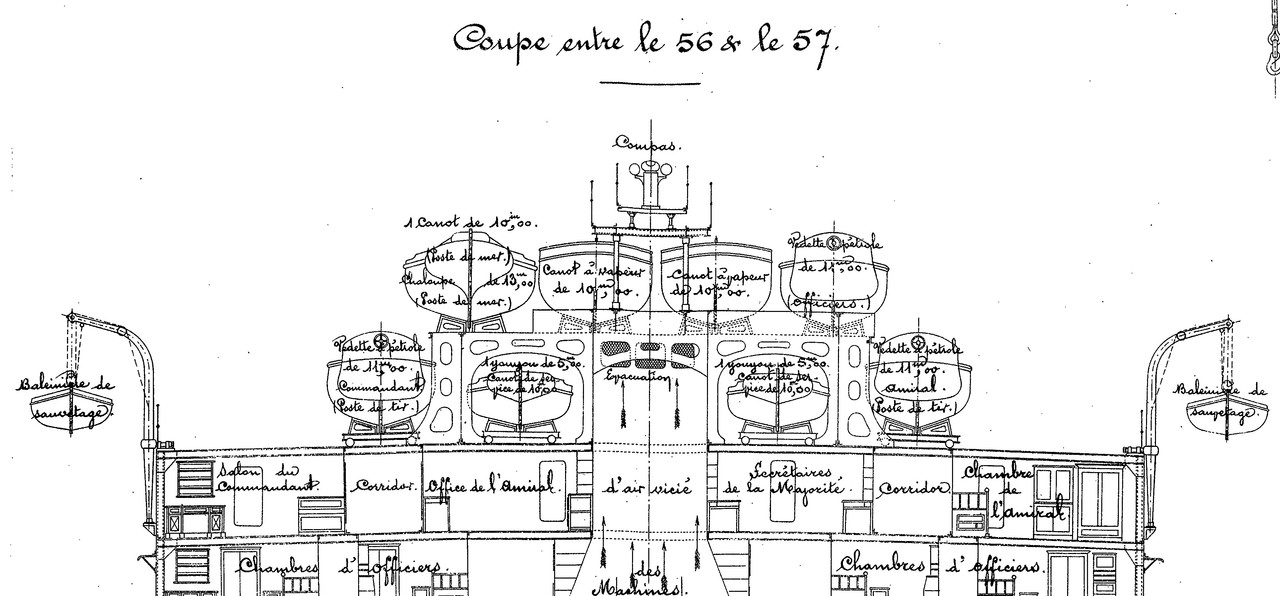 Coupe entre le 56 & le 57.
Compas.
1 Canot de 10,m00.
(Poste de mer.)
Chaloupe de 13,m00
(Poste de mer.)
Canot à vapeur
de 10,m00.
Canot à vapeur
de 10,m00.
Vedette à pétrole
de 11,m00.
(officiers.)
Baleinière de
sauvetage.
Vedette à pétrole
de 11,m00.
Commandant
(Poste de tir.)
1 youyou de 5,m00.
Canot de ser-
vice de 10,m00
Evacuation
1 youyou de 5,m00.
Canot de ser-
vice de 10,m00
Vedette à pétrole
de 11,m00.
Amiral.
(Poste de tir.)
Baleinière de
sauvetage.
Salon du
Commandant.
Corridor.
Office de l'Amiral.
d'air vicié
Secrétaires
de la Majorité.
Corridor.
Chambre
de
l'amiral.
Chambres d'officiers.
des
Machines.
Chambres d'officiers.